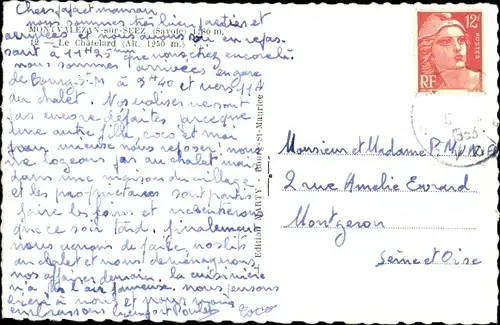 Chers papa et maman
nous sommes très bien parties et
MONTVALEZAN-sur-SEEZ (Savoie) 1180 m.
arrivées et nous avons eu un repas.
12 - Le Châtelard (Alt. 1250 m.)
que nous chez encore là
Nous sommes arrivées en gare
de Bourg St M à 9H40 et vers 11H
au chalet. Nos valises ne sont
pas encore défaites parce que
une autre fille, coco et moi
pour mieux nous reposer! nous
ne logeons pas au chalet mais
dans une maison du village
et les propriétaires sont partis
faire les foins et ne rentreront
que ce soir tard, finalement
nous venons de faire nos lits
au chalet et nous déménagerons
nos affaires demain, la cuisinière
n'a pas l'air fameuse. nous pensons
bien à vous et nous vous
embrassons bien fort Poulet
Coco
Edition MARTY - Bourg-St-Maurice
12F
POSTES
RF
Monsieur et Madame P.
2 rue Amélie Evrard
Montgeron
Seine et Oise